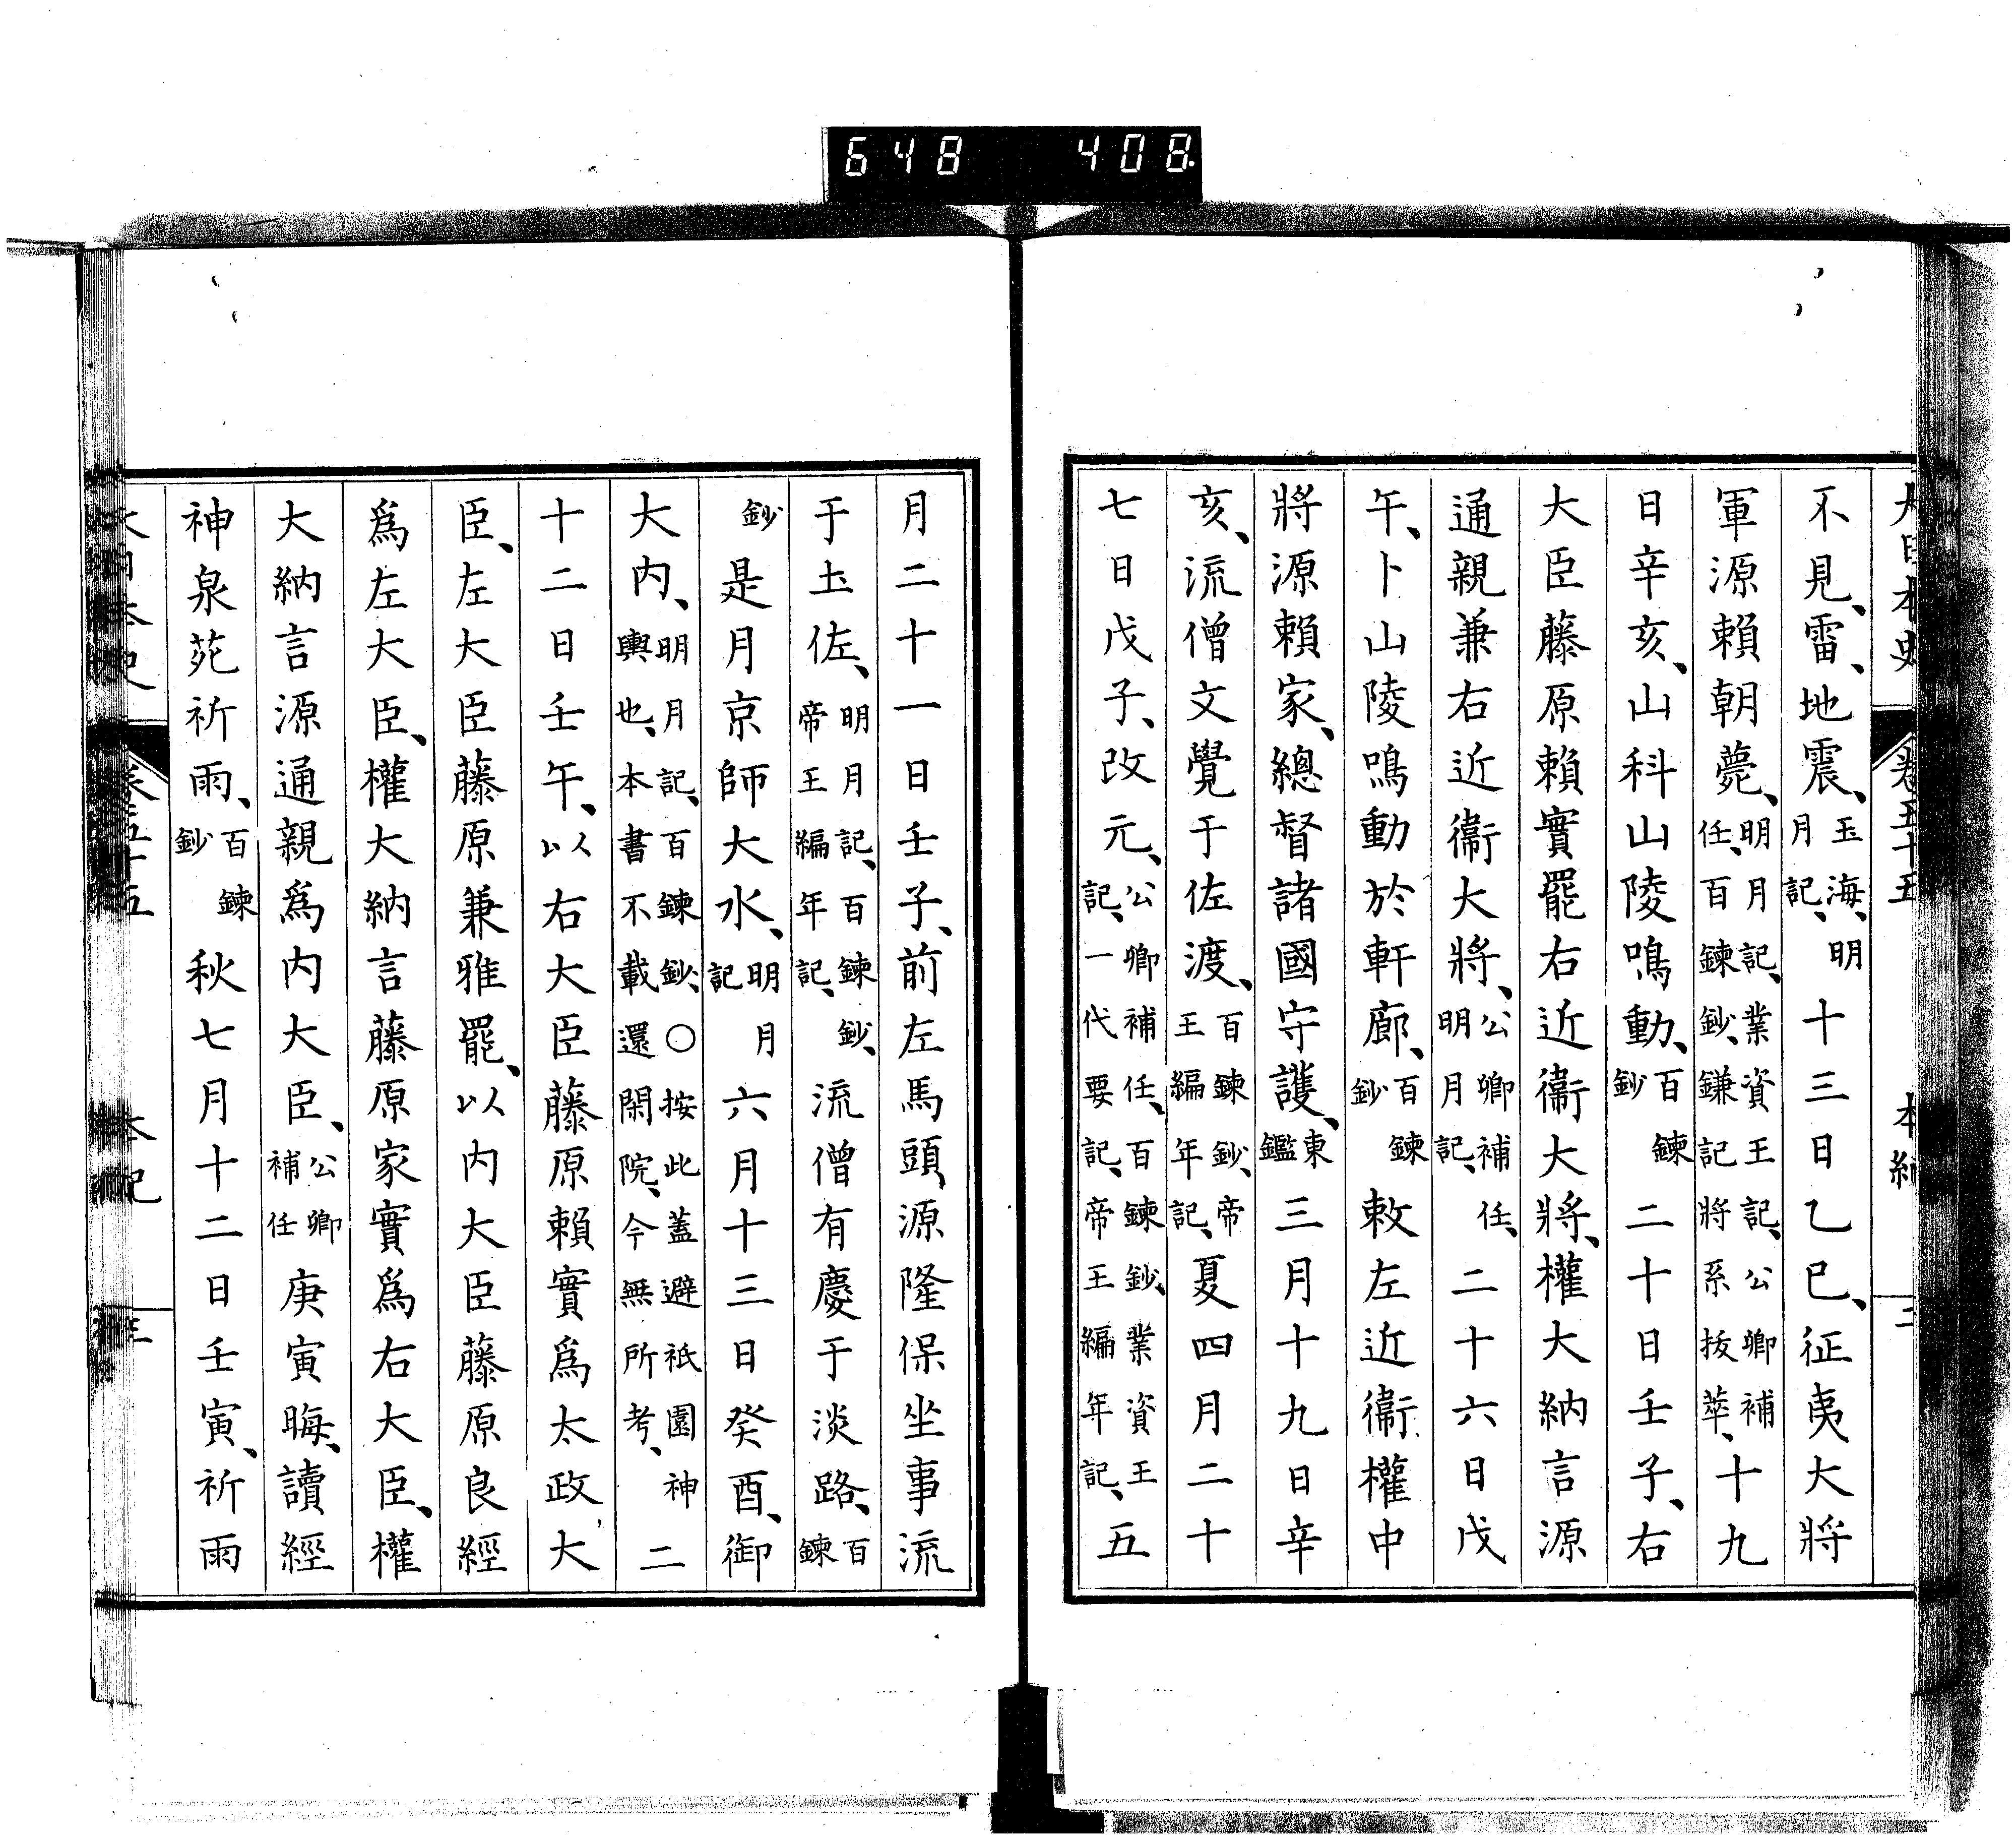 648 408
大日本史 卷五十五 本紀 二
不見、雷、地震、玉海、明月記、十三日乙巳、征夷大將
軍源賴朝薨、明月記、業資王記、公卿補任、百鍊鈔、鎌記將系抜萃、十九
日辛亥、山科山陵鳴動、百鍊鈔二十日壬子、右
大臣藤原賴實罷右近衞大將、權大納言源
通親兼右近衞大將、公卿補任、明月記、二十六日戊
午、卜山陵鳴動於軒廊、百鍊鈔敕左近衞權中
將源賴家、總督諸國守護、東鑑三月十九日辛
亥、流僧文覺于佐渡、百鍊鈔、帝王編年記、夏四月二十
七日戊子、改元、公卿補任、百鍊鈔、業資王記、一代要記、帝王編年記、五
月二十一日壬子、前左馬頭源隆保坐事流
于土佐、明月記、百鍊鈔、帝王編年記、流僧有慶于淡路、百鍊
鈔是月京師大水、明月記六月十三日癸酉、御
大内、明月記、百鍊鈔、○按此蓋避祇園神輿也、本書不載還閑院、今無所考、二
十二日壬午、以右大臣藤原賴實爲太政大
臣、左大臣藤原兼雅罷、以内大臣藤原良經
爲左大臣、權大納言藤原家實爲右大臣、權
大納言源通親爲内大臣、公卿補任庚寅晦、讀經
神泉苑祈雨、百鍊鈔秋七月十二日壬寅、祈雨
大日本史 卷五十五 本紀 三